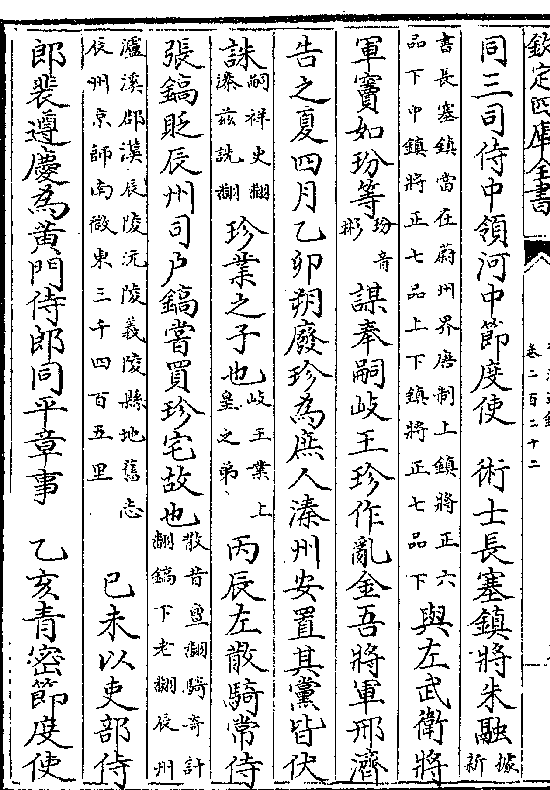 欽定四庫全書
卷二百二十二
同三司侍中領河中節度使　術士長塞鎮將朱融據新
書長塞鎮當在蔚州界唐制上鎮將正六
品下中鎮將正七品上下鎮將正七品下
與左武衛將
軍竇如玢等玢音彬謀奉嗣岐王珍作亂金吾將軍邢濟
告之夏四月乙卯朔廢珍為庶人溱州安置其黨皆伏
誅嗣祥史翻溱兹詵翻珍業之子也岐王業上皇之弟　丙辰左散騎常侍
張鎬貶辰州司戶鎬嘗買珍宅故也散昔亶翻騎奇計翻鎬下老翻辰州
瀘溪郡漢辰陵沅陵義陵縣地舊志
辰州京師南微東三千四百五里
已未以吏部侍
郎裴遵慶為黃門侍郎同平章事　乙亥青密節度使